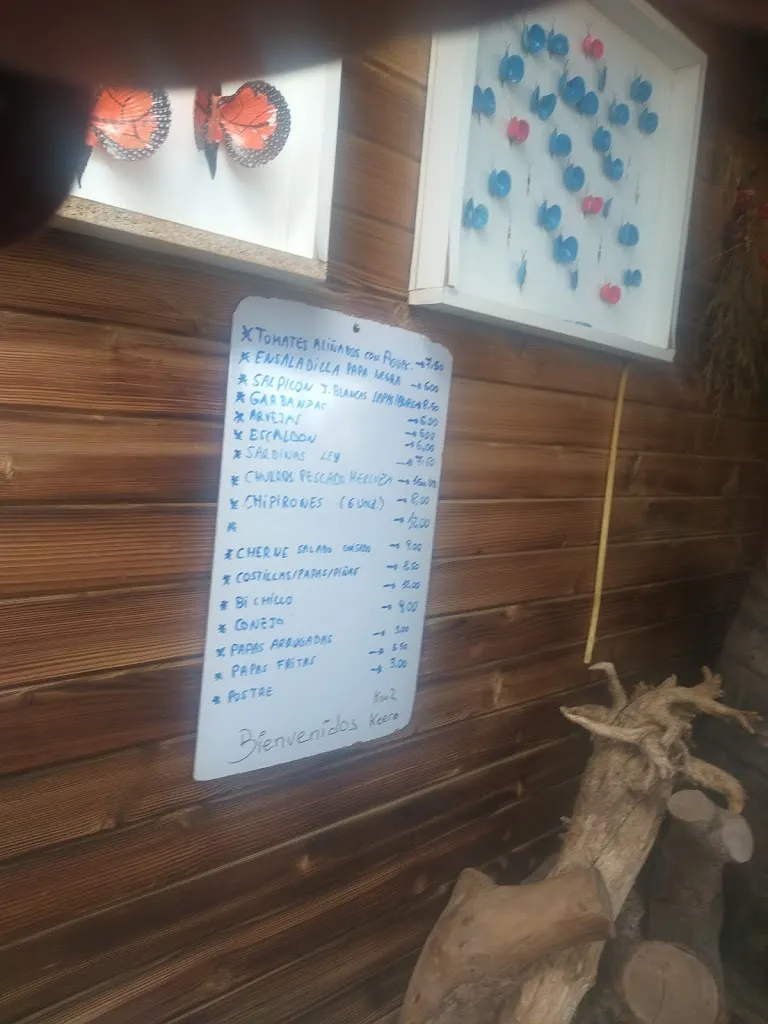 * TOMATES ALIÑADOS CON AGUAC. → 7,50
* ENSALADILLA PAPA NEGRA → 6,00
* SALPICON J. BLANCAS LAPAS/BURGAO 8,50
* GARBANZAS → 6,00
* ARVEJAS → 6,00
* ESCALDON → 6,00
* SARDINAS LEY → 7,50
* CHURROS PESCADO MERLUZA →
* CHIPIRONES (6 Unid.) → 8,00
* → 12,00
* CHERNE SALADO GUISADO → 9,00
* COSTILLAS/PAPAS/PIÑAS → 8,50
* BICHILLO → 12,00
* CONEJO → 9,00
* PAPAS ARRUGADAS → 3,00
* PAPAS FRITAS → 3,50
* POSTRE → 3,00
Bienvenidos